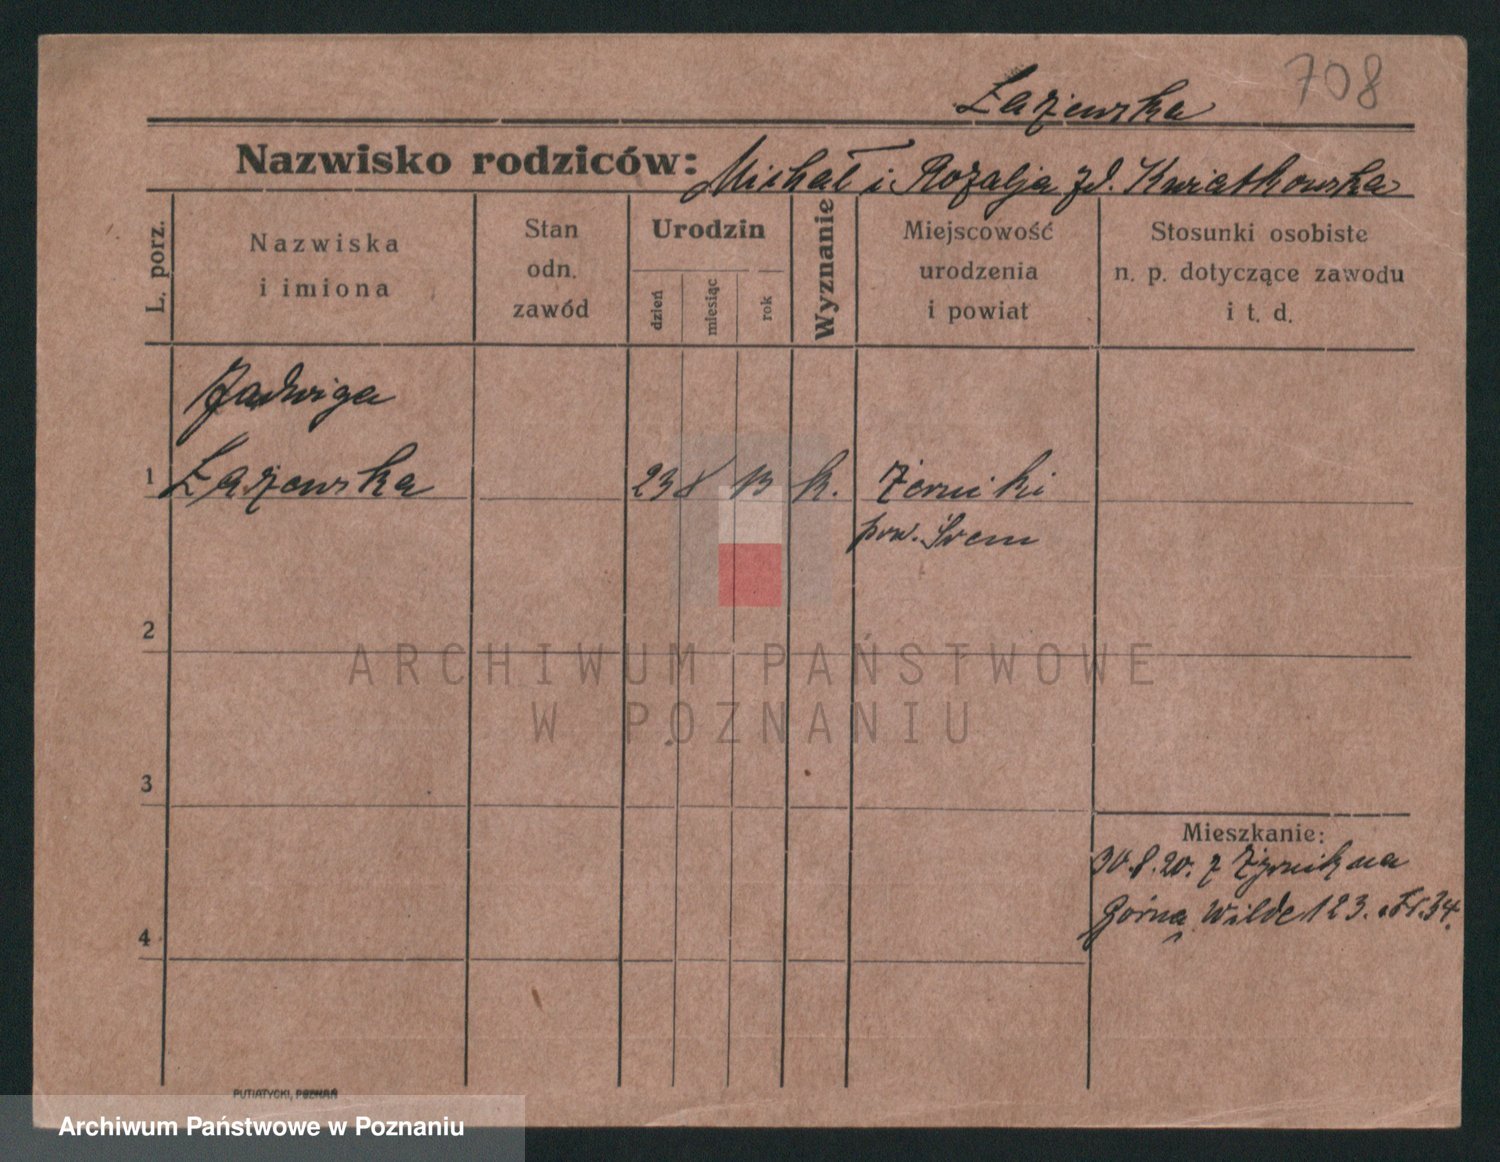 708
Łażewska
Nazwisko rodziców: Michał i Rozalja zd. Kwiatkowska
L. porz.
Nazwiska
i imiona
Stan
odn.
zawód
Urodzin
dzień
miesiąc
rok
Wyznanie
Miejscowość
urodzenia
i powiat
Stosunki osobiste
n. p. dotyczące zawodu
i t. d.
Jadwiga
1 Łażewska 23 8 13 k. Żerniki
pow. Śrem
2
ARCHIWUM PAŃSTWOWE
W POZNANIU
3
Mieszkanie:
30.8.20. z Żernik na
Górna Wilde 123. 34.
4
PUTIATYCKI, POZNAŃ
Archiwum Państwowe w Poznaniu